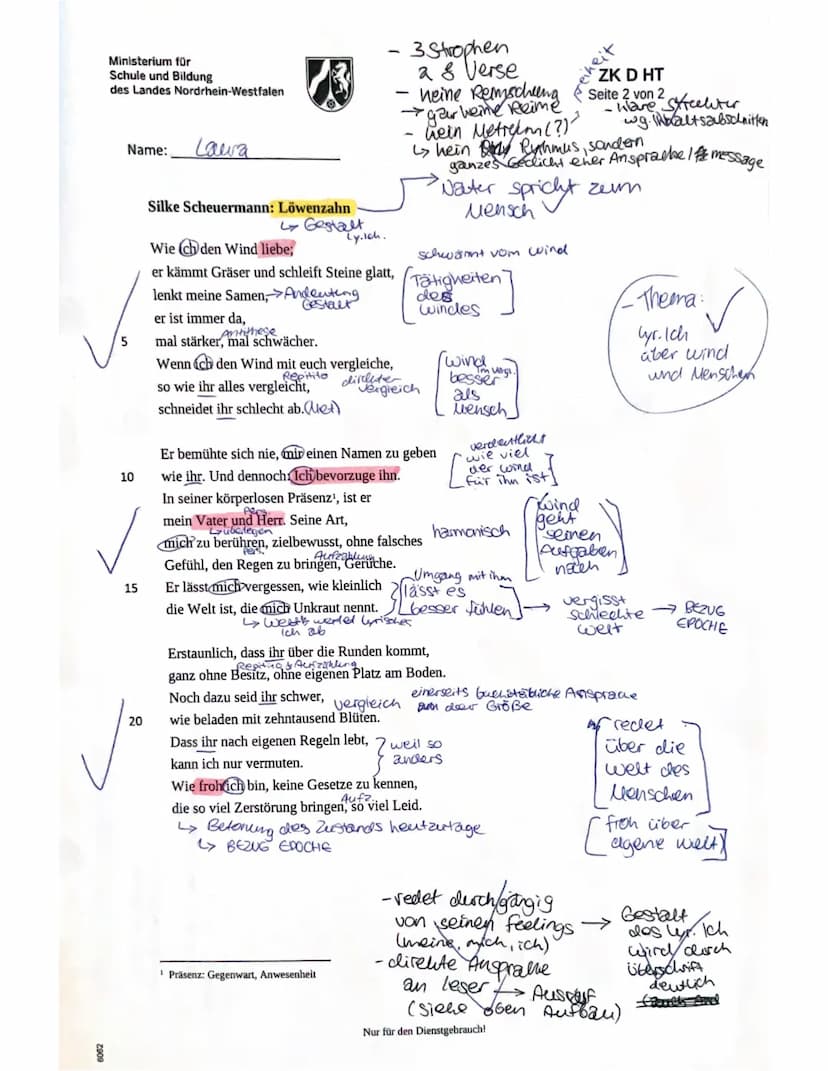 Ministerium für
Schule und Bildung
des Landes Nordrhein-Westfalen
- 3 Strophen
a 8 Verse
- keine Reimschema
→ gar keine Reime
- kein Metrum (?)
Freiheit
ZK D HT
Seite 2 von 2
wg. Inhaltsabschnitten
↳ kein Rythmus, sondern
ganzes Gedicht eher Ansprache / message
Name: Laura
Natur spricht zum
Mensch
Silke Scheuermann: Löwenzahn
↳ Gestalt
Ly. Ich.
Wie ich den Wind liebe;
schwärmt vom Wind
er kämmt Gräser und schleift Steine glatt,
lenkt meine Samen, → Andeutung
Gestalt
er ist immer da,
Tätigkeiten
des
Windes
Antithese
5 mal stärker, mal schwächer.
- Thema:
lyr. Ich
über Wind
und Menschen
Wenn ich den Wind mit euch vergleiche,
so wie ihr alles vergleicht,
direkter
Vergleich
schneidet ihr schlecht ab.
Wind
im Vergl.
besser
als
Mensch
Er bemühte sich nie, mir einen Namen zu geben
10 wie ihr. Und dennoch: Ich bevorzuge ihn.
verdeutlicht
wie viel
der Wind
für ihn ist
In seiner körperlosen Präsenz¹, ist er
Pers.
mein Vater und Herr. Seine Art,
↳ überlegen
mich zu berühren, zielbewusst, ohne falsches
harmonisch
Pers.
Aufzählung
Gefühl, den Regen zu bringen, Gerüche.
Wind
geht
seinen
Aufgaben
nach
15 Er lässt mich vergessen, wie kleinlich
die Welt ist, die mich Unkraut nennt.
Umgang mit ihm
lässt es
besser fühlen → vergisst
schlechte
Welt → BEZUG
EPOCHE
↳ Welt wertet lyrisches
Ich ab
Erstaunlich, dass ihr über die Runden kommt,
ganz ohne Besitz, ohne eigenen Platz am Boden.
Noch dazu seid ihr schwer,
vergleich
einerseits buchstäbliche Ansprache
der Größe
20 wie beladen mit zehntausend Blüten.
Dass ihr nach eigenen Regeln lebt,
kann ich nur vermuten.
weil so
anders
redet
über die
Welt des
Menschen
Wie froh ich bin, keine Gesetze zu kennen,
Aufz.
die so viel Zerstörung bringen, so viel Leid.
↳ Betonung des Zustands heutzutage
↳ BEZUG EPOCHE
froh über
eigene Welt
- redet durchgängig
von seinen feelings
(meine, mich, ich)
→ Gestalt
des lyr. Ich
wird durch
Überschrift
deutlich
- direkte Ansprache
an Leser → Ausruf
(siehe oben Aufbau)
¹ Präsenz: Gegenwart, Anwesenheit
Nur für den Dienstgebrauch!
6062